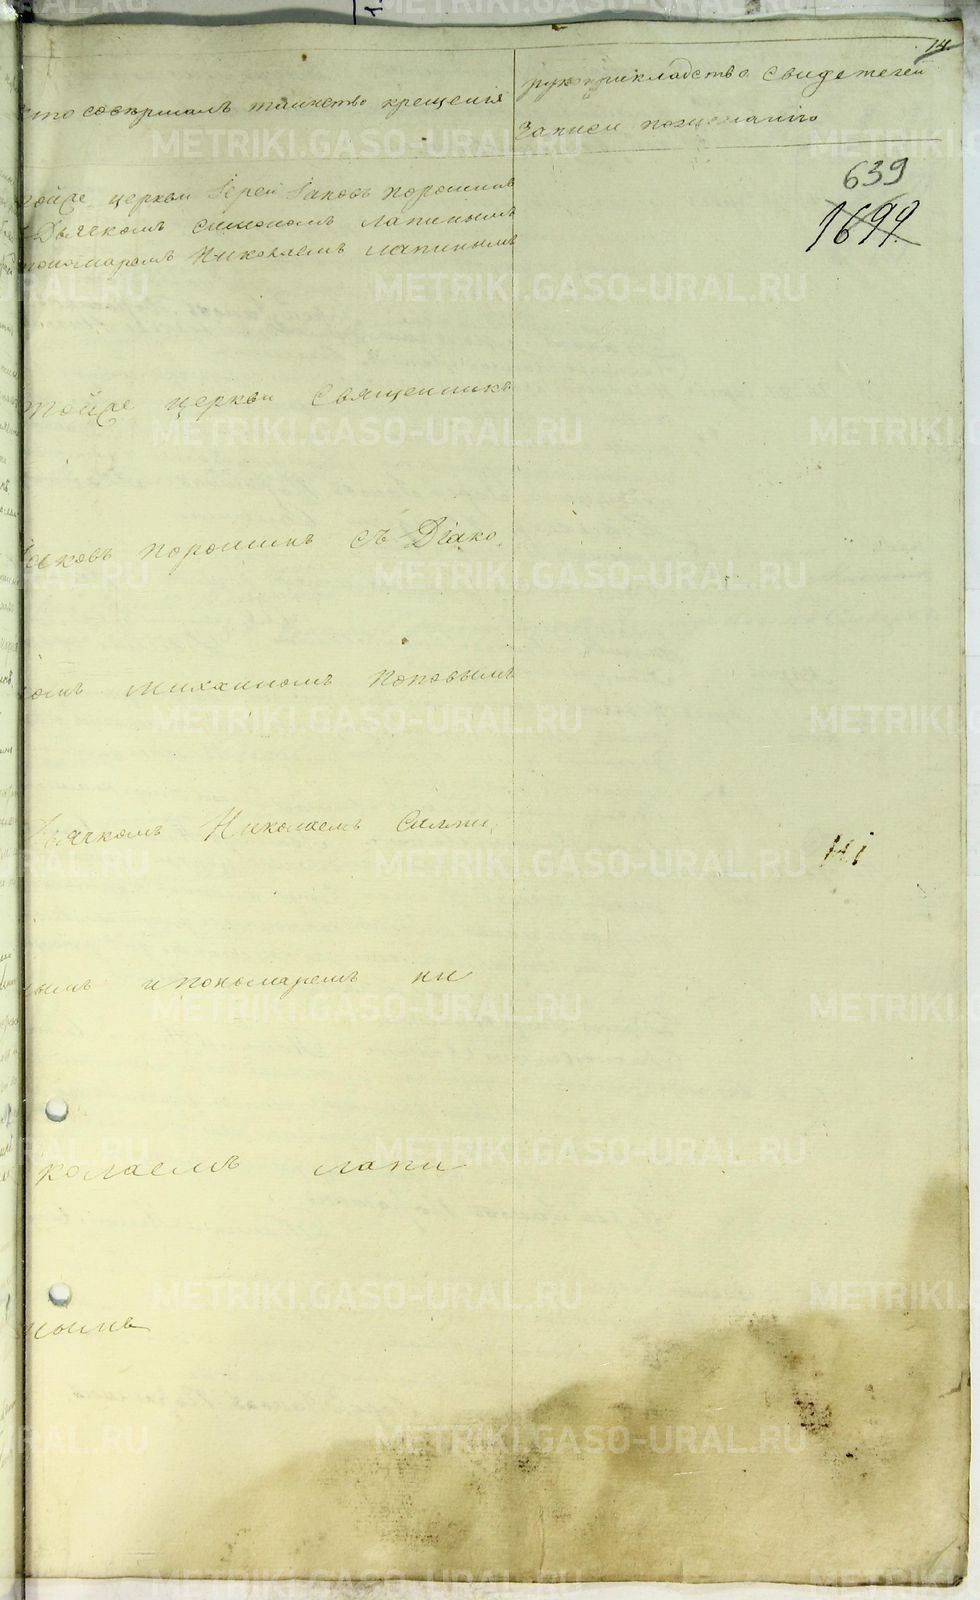 14.
кто совершалъ таинство крещенія
рукоприкладство свидетелей
записи по желанію
639
1699
тойже церкви Іерей Іаковъ Порошинъ
Дьячекомъ Симономъ Лапинымъ
пономаремъ Николаемъ Лапинымъ
тойже церкви Священникъ
Іаковъ Порошинъ съ Діако
Поповымъ
Дьячкомъ Николаемъ
нымъ и пономаремъ ни
колаемъ лапи
нымъ
METRIKI.GASO-URAL.RU